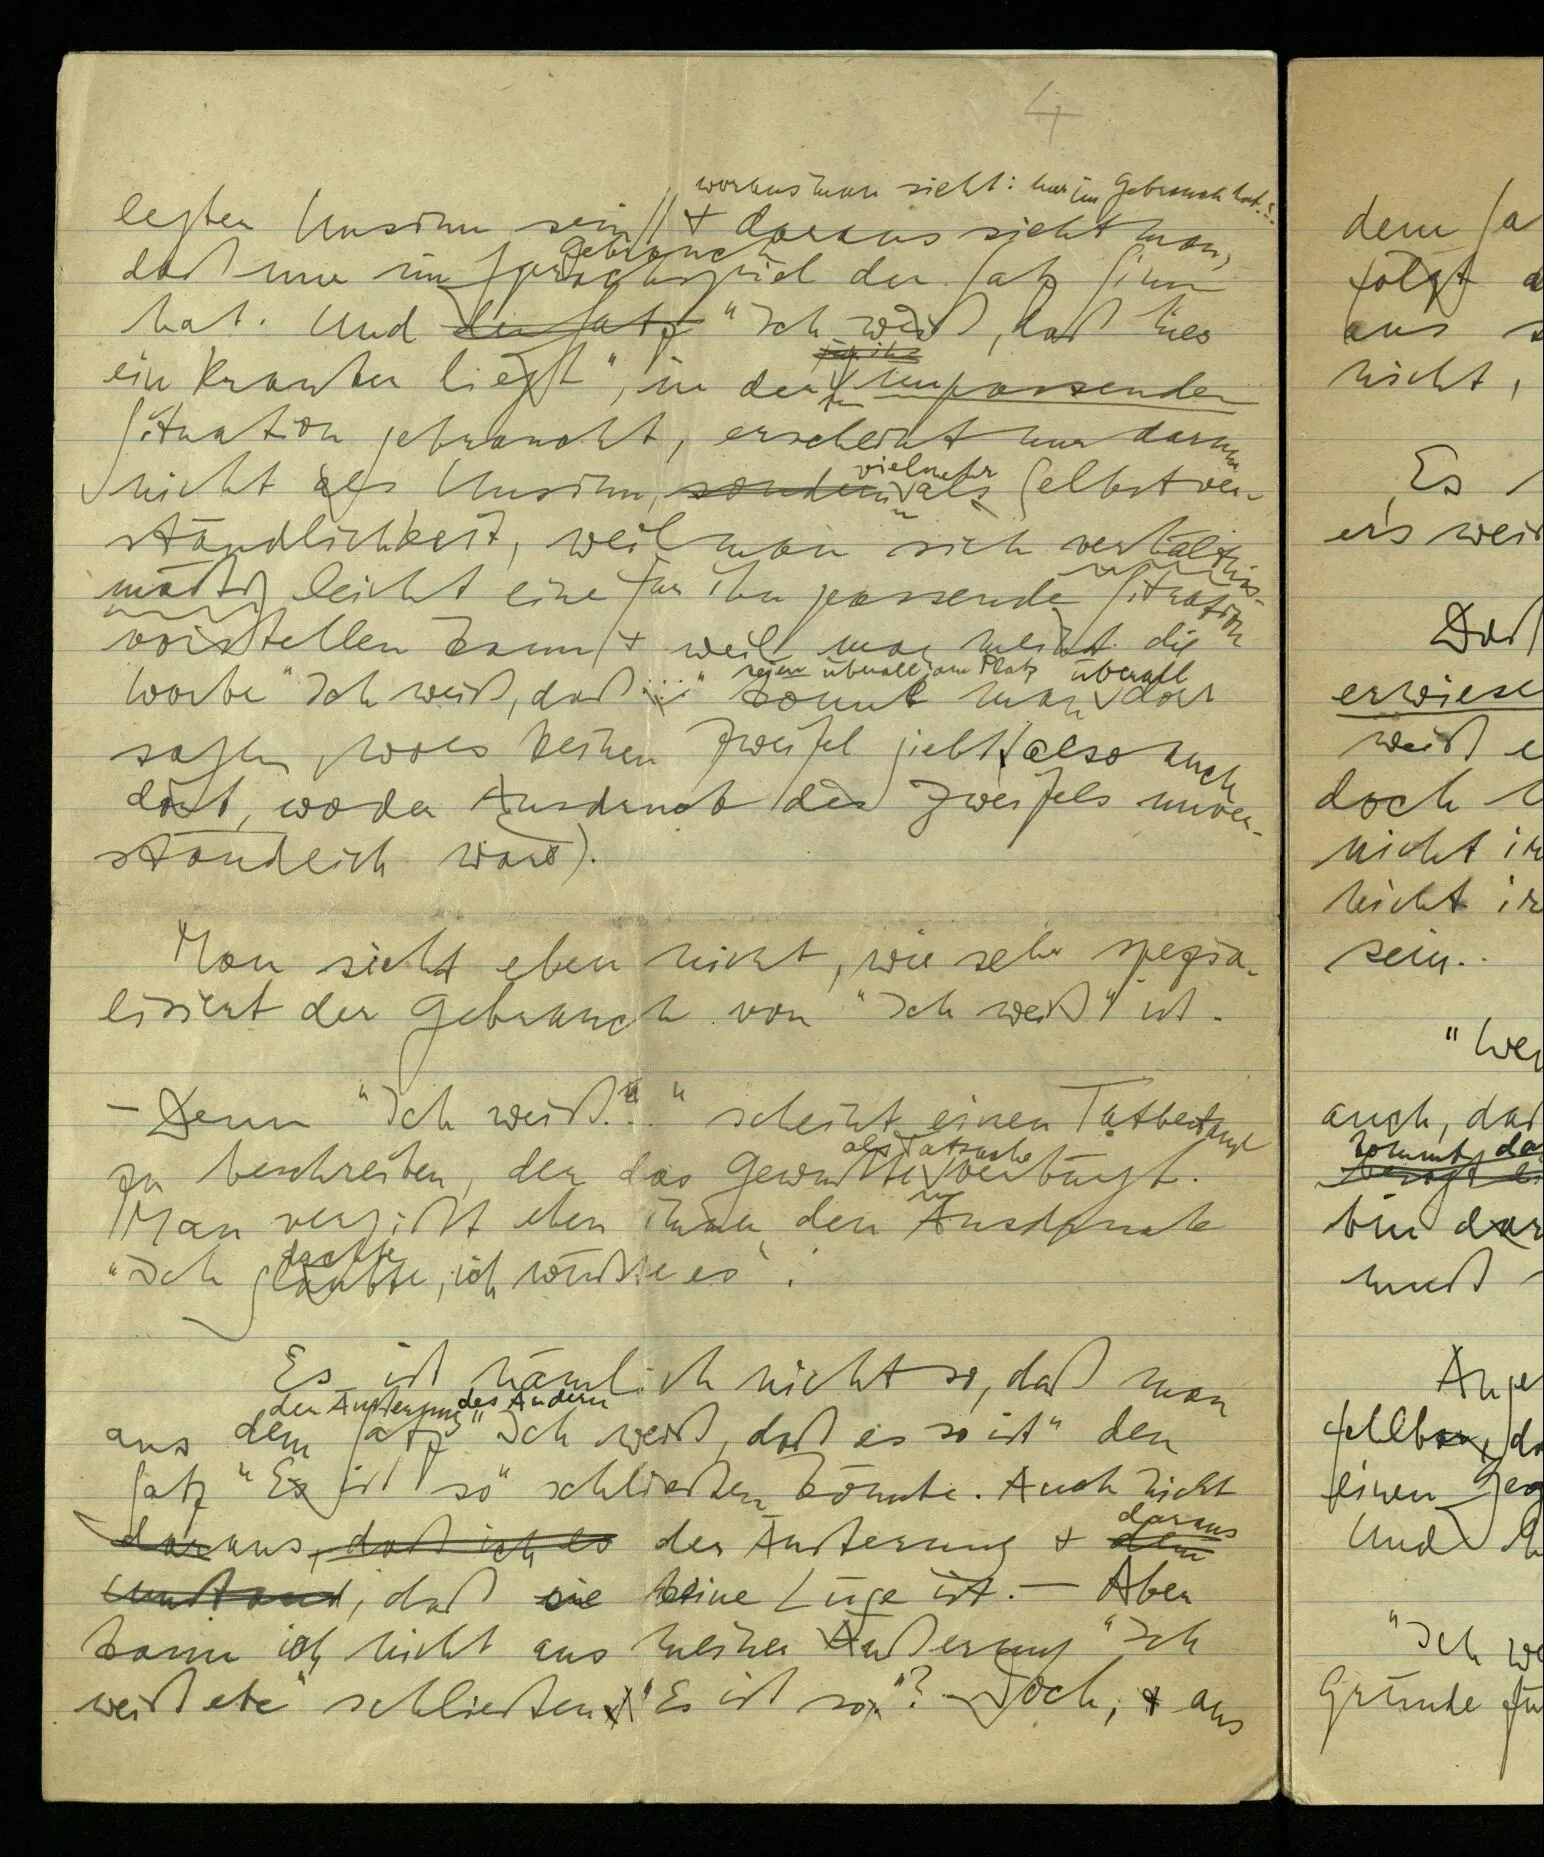 4
woraus man sieht: nur im Gebrauch hat..
legter Unsinn sein // + daraus sieht man,
Gebrauch
daß nur im Sprachspiel der Satz Sinn
hat. Und der Satz "Ich weiß, daß hier
ein Kranker liegt", in der unpassenden
Situation gebraucht, erscheint nur darum
vielmehr
nicht als Unsinn, sondern als Selbstver-
ständlichkeit, weil man sich verhältnis-
mäßig leicht eine für ihn passende Situation
vorstellen kann + weil man meint die
seien überall am Platz überall
Worte "Ich weiß, daß ..." könnte man dort
sagen, wo es keinen Zweifel giebt (also auch
dort, wo der Ausdruck des Zweifels unver-
ständlich wäre).
Man sieht eben nicht, wie sehr spezia-
lisiert der Gebrauch von "Ich weiß" ist.
– Denn "Ich weiß..." scheint einen Tatbestand
als Tatsache
zu beschreiben, der das Gewußte verbürgt.
Man vergißt eben immer den Ausdruck
dachte
"Ich glaubte, ich wüßte es".
Es ist nämlich nicht so, daß man
der Äußerung des Andern
aus dem Satz "Ich weiß, daß es so ist" den
Satz "Es ist so" schließen könnte. Auch nicht
daraus
daraus, daß ich es der Äußerung + dem
Umstand, daß sie keine Lüge ist. — Aber
kann ich nicht aus meiner Äußerung "Ich
weiß etc" schließen "Es ist so"? Doch, + aus
dem Sa
folgt a
aus
nicht,
Es
er's weiß
Daß
erwiese
weiß e
doch
nicht ir
nicht ir
sein.
"Wen
auch, daß
kommt da
bin dar
muß
Ange
fehlbar, da
einen Geg
Und
"Ich we
Gründe für